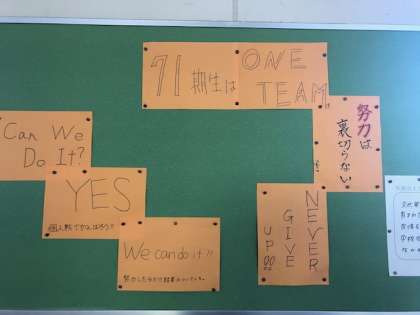 71期生は ONE
TEAM
努力は
裏切らない
Can We
Do It?
YES
We can do it!!
NEVER
GIVE
UP!!